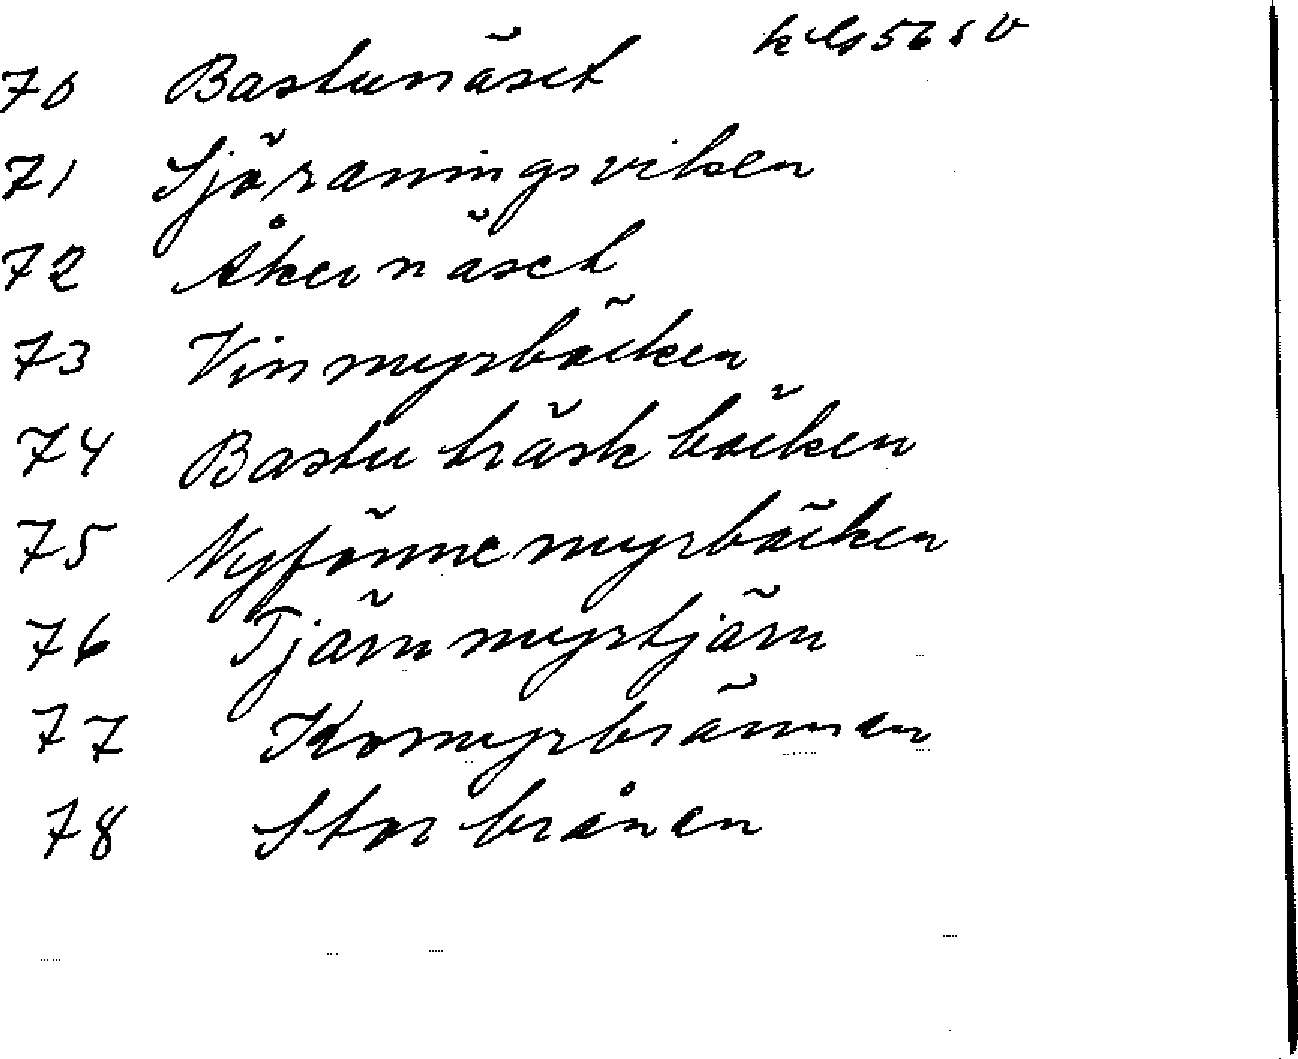 70 Bastunäset
71 Sjöraningsviken
72 Åkernäset
73 Vinmyrbäcken
74 Bastuträskbäcken
75 Nyfönnemyrbäcken
76 Tjärnmyrtjärn
77 Komyrbrännan
78 Storbrånen